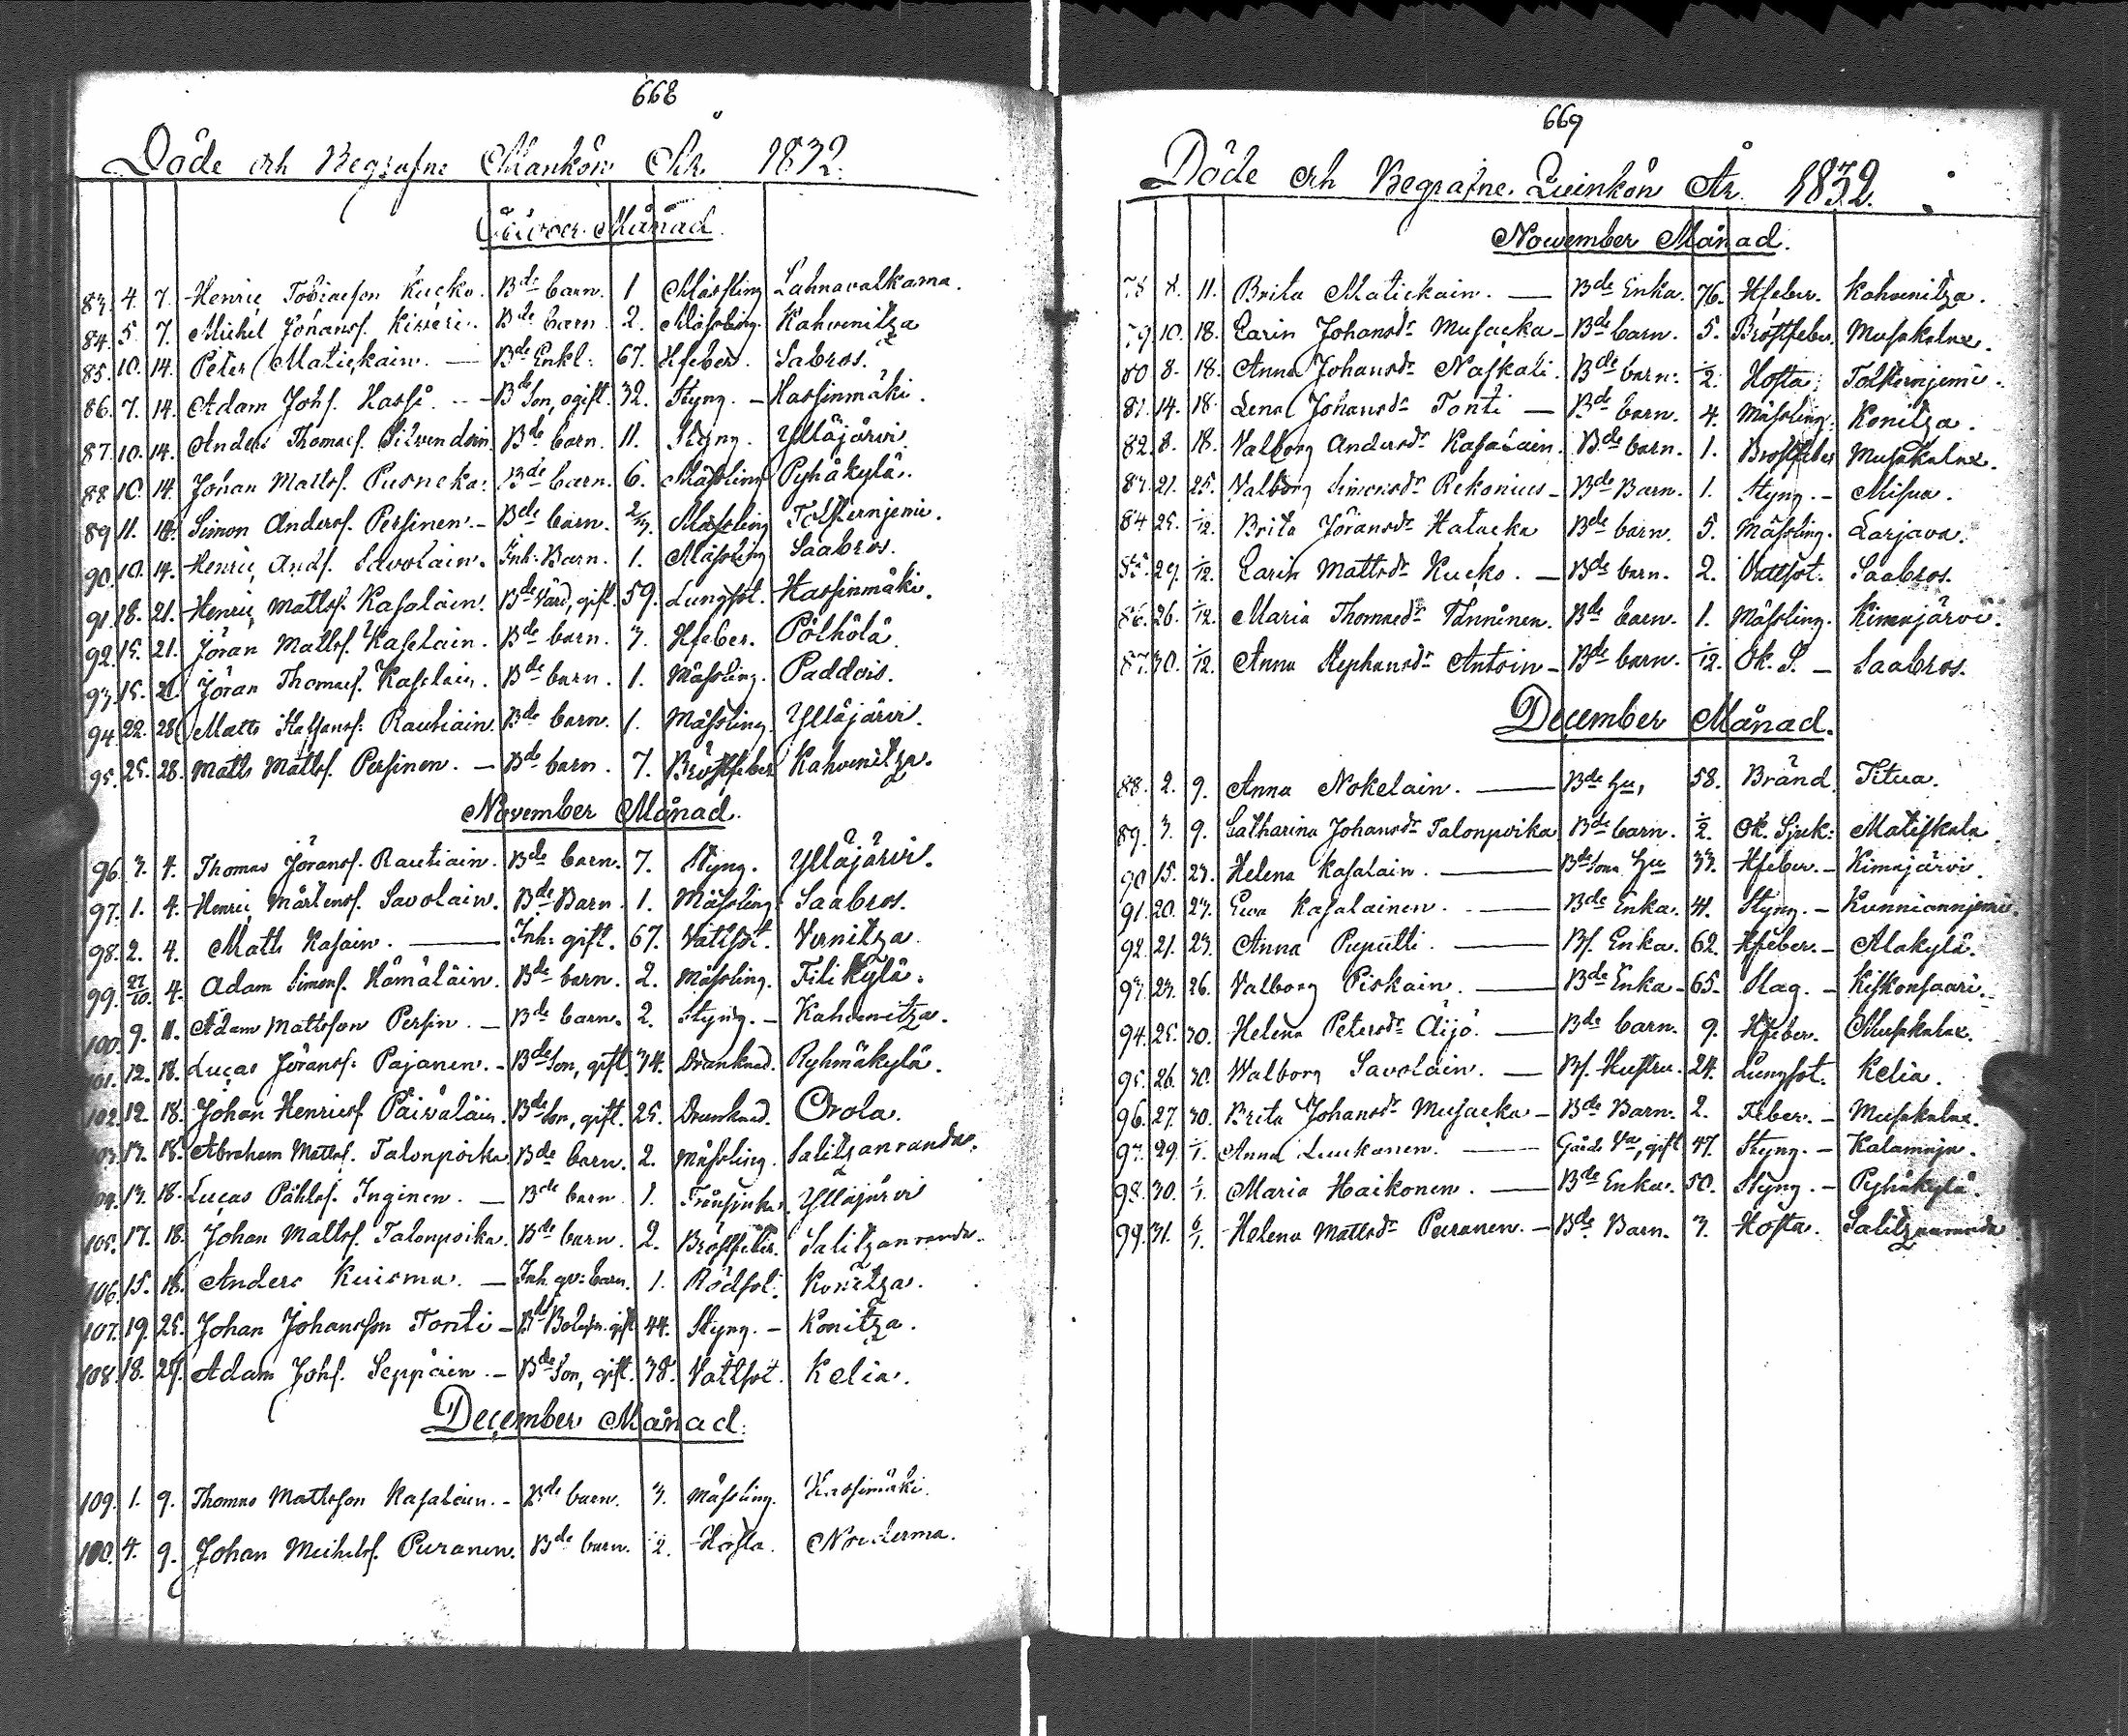 668
Döde och Begrafne Mankön År. 1832.
Månad
83. 4. 7. Henric Tobiaeson Kucko. Bde barn. 1 Mässling Lahnavalkama.
84. 5. 7. Michel Johansf. Bde barn 2. Mässling. Kahvenitza
85. 10. 14. Peter Matickain. — Bde Enkl: 67. Hfeber. Sabros.
86. 7. 14. Adam Johf. Hassi. — Bde Son, ogift. 32. Styng. — Hassinmäki.
87. 10. 14. Anders Thomasf. Silvendoin Bde barn. 11. Styng. Ylläjärvi
88 10. 14. Johan Mattsf. Pusneka. Bde barn. 6. Mässling Pyhäkylä.
89 11. 14. Simon Andersf. Persinen. — Bde barn. Mässling Tolkernjemi.
90. 10. 14. Henric Andf. Savolain. Inh: Barn. 1. Mässling Saabros.
91. 18. 21. Henric Mattsf. Kasalain. Bde Värd, gift. 59. Lungsot. Hassinmäki.
92. 15. 21. Jöran Mattsf. Kaselain. Bde barn. 3. Hfeber. Pölhölä
93. 15. 21. Jöran Thomasf. Kaselain. Bde barn. 1. Mässling. Paddois.
94. 22. 28. Matts Staffansf. Rautiain. Bde barn. 1. Mässling. Ylläjärvi.
95. 25. 28. Matts Mattsf. Persinen. — Bde barn. 7. Bröstfeber Kahvenitza.
November Månad.
96. 3. 4. Thomas Jöransf. Rautiain. Bde barn. 7. Styng. Ylläjärvi.
97. 1. 4. Henric Mårtensf. Savolain. Bde Barn. 1. Mässling Saabros.
98. 2. 4. Matts Kasain. — Inh: gift. 67. Vattsot. Vernitza
99. 27/10. 4. Adam Simonsf. Hämäläin. Bde barn. 2. Mässling. Tilikylä.
100. 9. 11. Adam Mattsson Persin. — Bde barn. 2. Styng. — Kahvenitza.
101. 12. 18. Lucas Jöransf. Pajanen. — Bde Son, gift. 34. Drunknad. Ryhmäkylä.
102. 12 18. Johan Henricsf Päiväläin. Bde Son, gift. 25. Drunknad. Orola.
103. 13. 18. Abraham Mattsf. Talonpoika Bde barn. 2. Mässling. Salitzanranda.
104. 13. 18. Lucas Påhlsf. Inginen. — Bde barn 1. Ylläjärvi
105. 17. 18. Johan Mattsf. Talonpoika. Bde barn. 2. Bröstfeber. Salitzanranda.
106. 15. 18. Anders Kuisma. — Inh. qv: barn. 1. Rödsot. Konitza.
107. 19. 25. Johan Johansson Tonti — 44. Styng. — Konitza.
108. 18. 25. Adam Johf. Seppäin. — Bde Son, gift. 38. Vattsot. Kelia.
December Månad.
109. 1. 9. Thomas Mattsson Kasalain. — Bde barn. 3. Mässling. Hassimäki.
100. 4. 9. Johan Michelsf. Puranen. Bde barn. ½. Hosta. Noiderma.
669
Döde och Begrafne. Quinkön År. 1832.
November Månad.
78 8. 11. Brita Matickain. — Bde Enka. 76. Hfeber. Kahvenitza.
79 10. 18. Carin Johansdr Musacka — Bde barn. 5. Bröstfeber. Musakalax.
80 8. 18. Anna Johansdr Naskali. Bde barn. ½. Hosta. Tolkernjemi.
81. 14. 18. Lena Johansdr Tonti — Bde barn. 4. Mässling. Konitza.
82. 8. 18. Valborg Andersdr Kasalain. Bde barn. 1. Bröstfeber Musakalax.
83. 21. 25. Valborg Simonsdr Rekonius — Bde Barn. 1. Styng. — Misua.
84 25. 2/12. Brita Jöransdr Hatacka Bde barn. 5. Mässling. Larjava.
85. 29. 2/12. Carin Mattsdr Kucko. — Bde barn. 2. Vattsot. Saabros.
86. 26. 2/12. Maria Thomasdr Tanninen. Bde barn. 1. Mässling. Kimenjärvi.
87. 30. 2/12. Anna Stephansdr Antoin — Bde barn. Ok. S. — Saabros.
December Månad.
88. 2. 9. Anna Nokelain. — Bde Hu, 58. Bränd Titua.
89. 3. 9. Catharina Johansdr Talonpoika Bde barn. ½. Ok. Sjuk: Matiskala
90 15. 23. Helena Kasalain. — Bde Sons Hu 33. Hfeber. — Kimajärvi.
91. 20. 23. Ewa Kasalainen. — Bde Enka. 41. Styng. — Kunnianniemi.
92. 21. 23. Anna Puputti. — Bf. Enka. 62. Hfeber. — Alakylä.
93. 23. 26. Valborg Piskain. — Bde Enka — 65. Slag. — Kiskonsaari.
94. 25. 30. Helena Petersdr Äijö. — Bde barn. 9. Hfeber. Musakalax.
95. 26. 30. Walborg Savolain. — Bf. Hustru. 24. Lungsot. Kelia.
96. 27. 30. Brita Johansdr Musacka — Bde Barn. 2. Feber. — Musakalax.
97. 29. Anna Luukanen. — Gårds Va, gift 47. Styng. — Kalamaja.
98. 30. Maria Haikonen. — Bde Enka. 50. Styng. — Pyhäkylä.
99. 31. 6/1. Helena Mattsdr Puranen. — Bde Barn. 3. Hosta. Salitzanranda